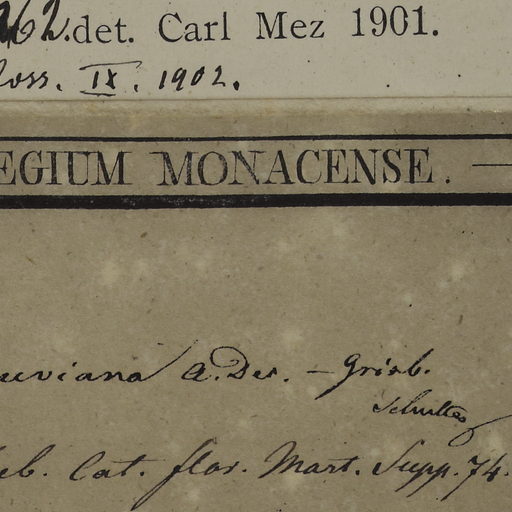 262. det. Carl Mez 1901.
oss. IX. 1902.
EGIUM MONACENSE. —
uviana A. Dec. – Griseb.
Schultes
eb. Cat. flor. Mart. Supp. 74.